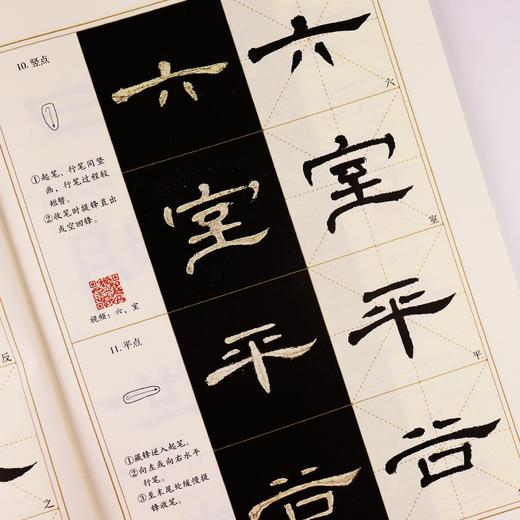 10. 竖点
①起笔、行笔同竖
画，行笔过程较
短暂。
②收笔时提锋直出
或空回锋。
视频：六、室
11. 平点
①藏锋逆入起笔。
②向左或向右水平
行笔。
③至末尾处缓慢提
锋收笔。
六
室
平
六
室
平
六
室
平
反
之